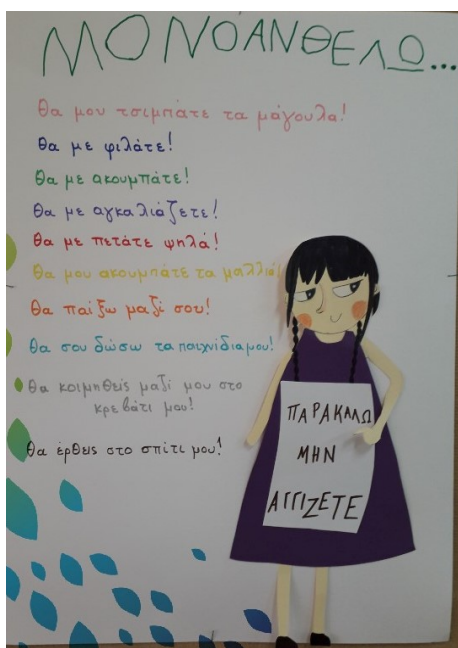 ΜΟΝΟ ΑΝ ΘΕΛΩ...
θα μου τσιμπάτε τα μάγουλα!
θα με φιλάτε!
θα με ακουμπάτε!
θα με αγκαλιάζετε!
θα με πετάτε ψηλά!
θα μου ακουμπάτε τα μαλλιά!
θα παίξω μαζί σου!
θα σου δώσω τα παιχνίδια μου!
θα κοιμηθείς μαζί μου στο
κρεβάτι μου!
θα έρθεις στο σπίτι μου!
ΠΑΡΑΚΑΛΩ
ΜΗΝ
ΑΓΓΙΖΕΤΕ